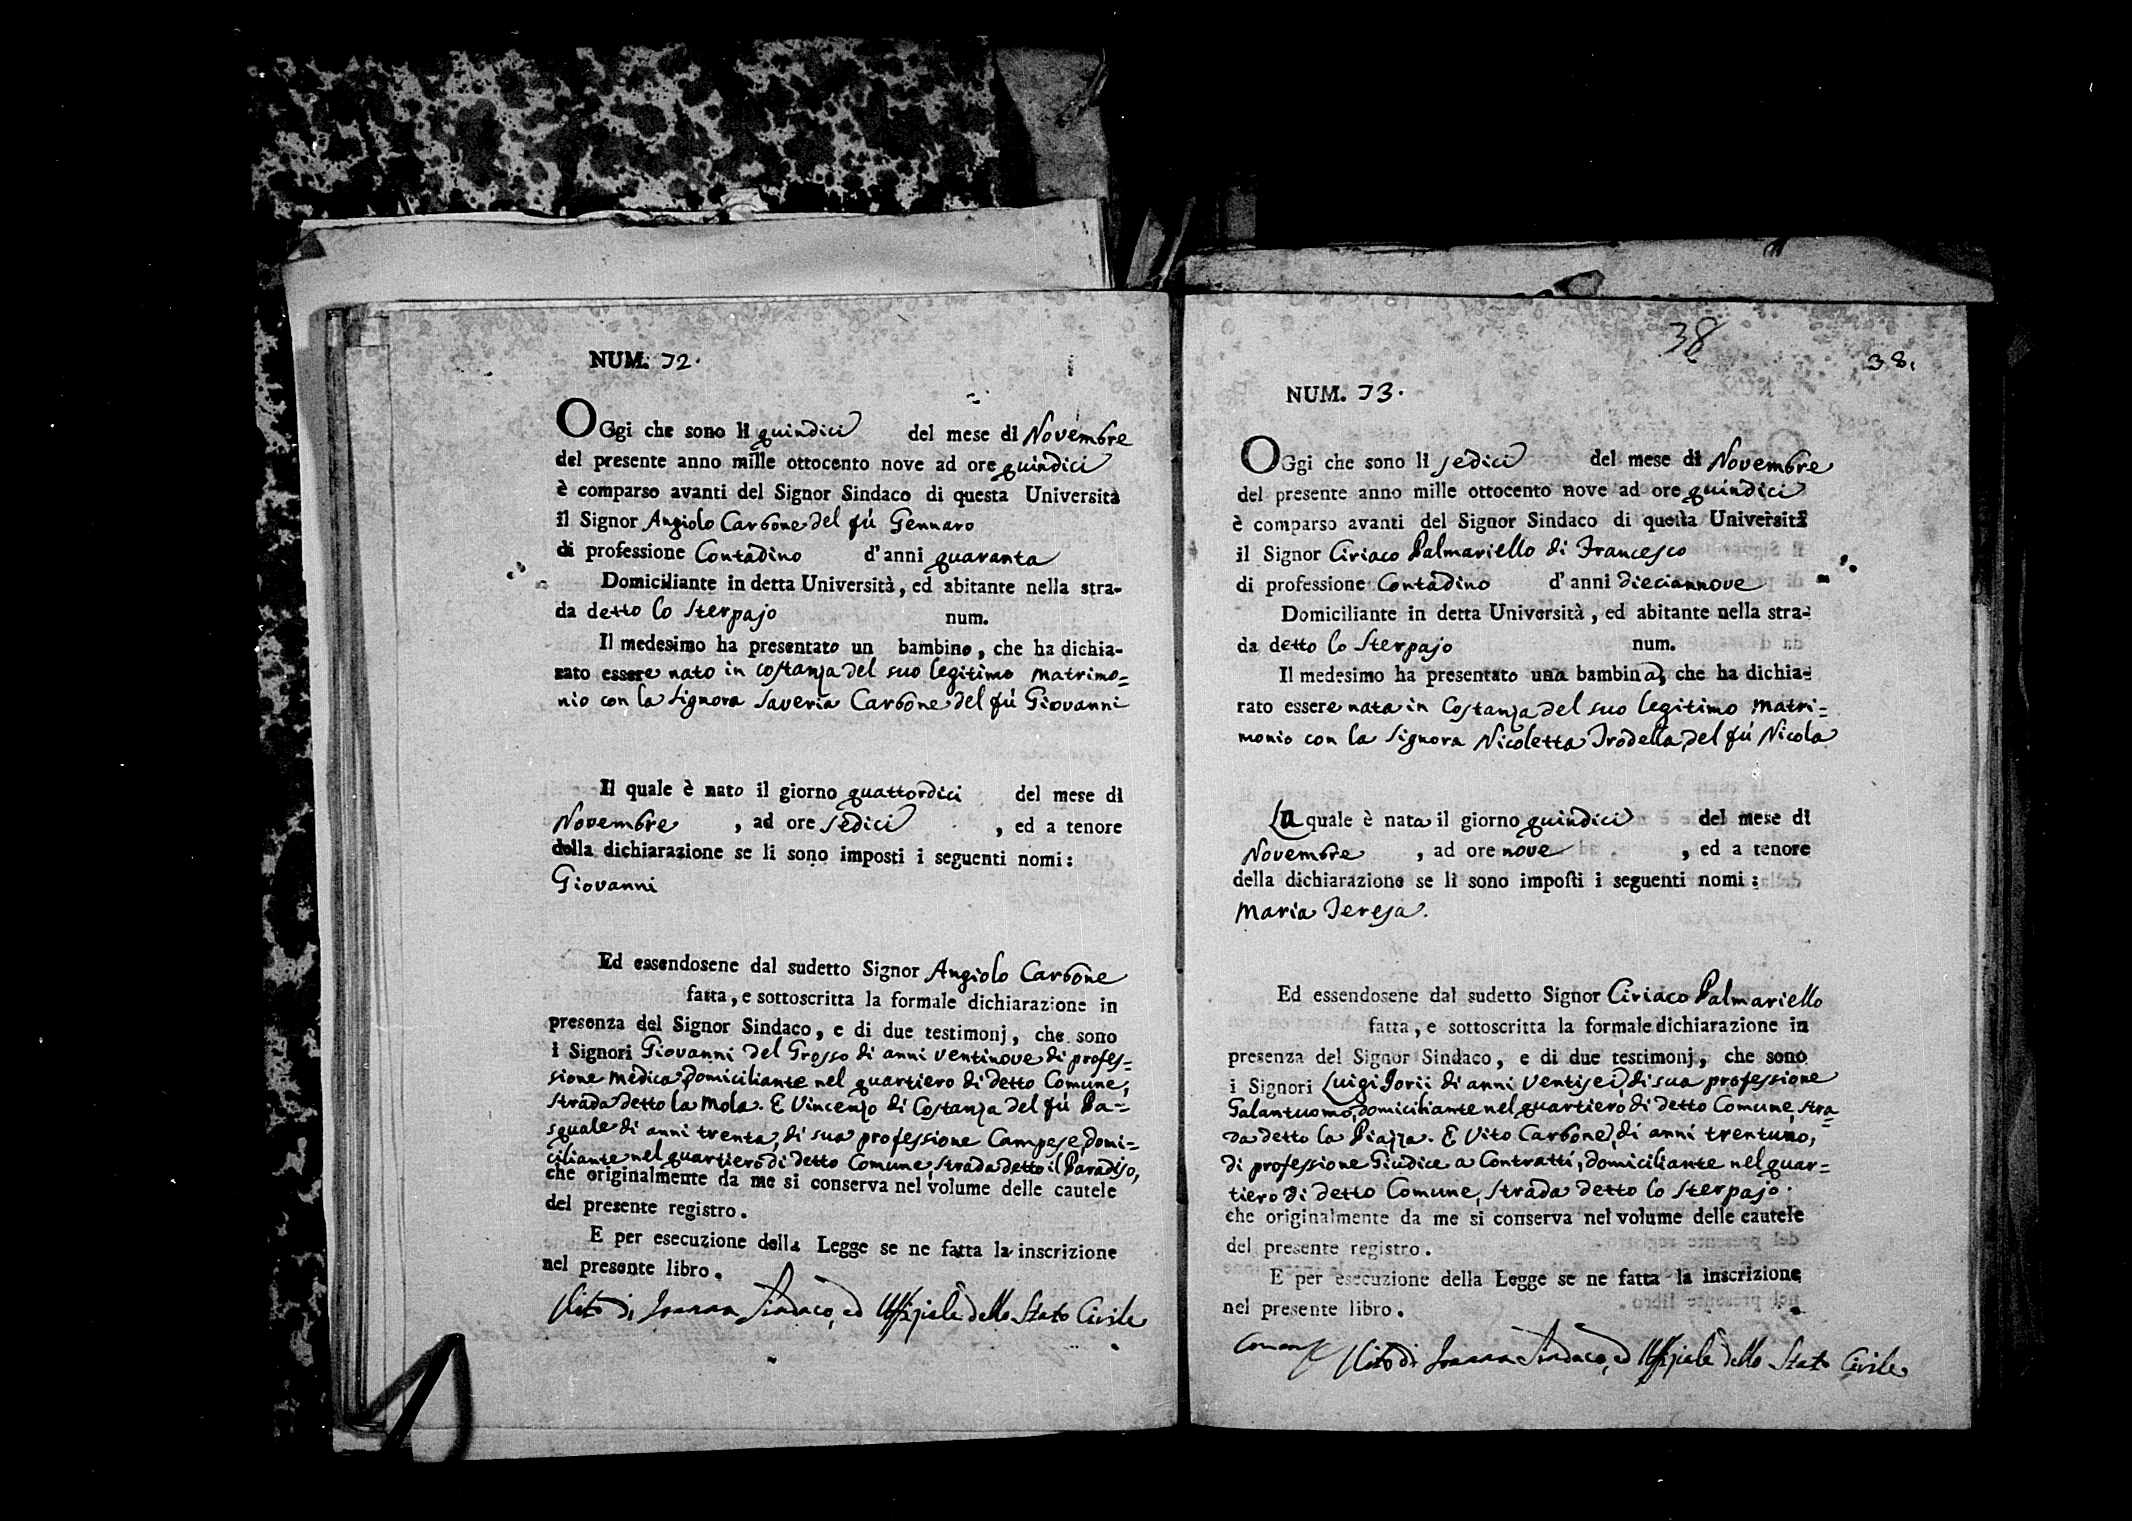 NUM. 72.
OGgi che sono li quindici del mese di Novembre
del presente anno mille ottocento nove ad ore quindici
è comparso avanti del Signor Sindaco di questa Università
il Signor Angiolo Carbone del fú Gennaro
di professione Contadino d'anni quaranta
Domiciliante in detta Università, ed abitante nella stra-
da detto lo Sterpajo num.
Il medesimo ha presentato un bambino, che ha dichia-
rato essere nato in costanza del suo legitimo matrimo=
nio con la Signora Saveria Carbone del fú Giovanni
Il quale è nato il giorno quattordici del mese di
Novembre, ad ore sedici, ed a tenore
della dichiarazione se li sono imposti i seguenti nomi:
Giovanni
Ed essendosene dal sudetto Signor Angiolo Carbone
fatta, e sottoscritta la formale dichiarazione in
presenza del Signor Sindaco, e di due testimonj, che sono
i Signori Giovanni del Grosso di anni ventinove di profes=
sione medica, domiciliante nel quartiero di detto Comune,
strada detto la Mola. E Vincenzo di Costanza del fú Pa=
squale di anni trenta, di sua professione Campese, domi=
ciliante nel quartiero di detto Comune, strada detto il Paradiso,
che originalmente da me si conserva nel volume delle cautele
del presente registro.
E per esecuzione della Legge se ne fatta la inscrizione
nel presente libro.
Vito di Ioanna Sindaco, ed Uffiziale dello Stato Civile
38
38.
NUM. 73.
OGgi che sono li sedici del mese di Novembre
del presente anno mille ottocento nove ad ore quindici
è comparso avanti del Signor Sindaco di questa Università
il Signor Ciriaco Palmariello di Francesco
di professione Contadino d'anni dieciannove
Domiciliante in detta Università, ed abitante nella stra-
da detto lo Sterpajo num.
Il medesimo ha presentato una bambina, che ha dichia-
rato essere nata in Costanza del suo legitimo matri=
monio con la Signora Nicoletta Trodella del fú Nicola
La quale è nata il giorno quindici del mese di
Novembre, ad ore nove, ed a tenore
della dichiarazione se li sono imposti i seguenti nomi:
Maria Teresa.
Ed essendosene dal sudetto Signor Ciriaco Palmariello
fatta, e sottoscritta la formale dichiarazione in
presenza del Signor Sindaco, e di due testimonj, che sono
i Signori Luigi Jorii di anni ventisei, di sua professione
Galantuomo, domiciliante nel quartiero di detto Comune, stra=
da detto la Piazza. E Vito Carbone, di anni trentuno,
di professione Giudice a Contratti, domiciliante nel quar=
tiero di detto Comune, strada detto lo Sterpajo.
che originalmente da me si conserva nel volume delle cautele
del presente registro.
E per esecuzione della Legge se ne fatta la inscrizione
nel presente libro.
Vito di Ioanna Sindaco, ed Uffiziale dello Stato Civile